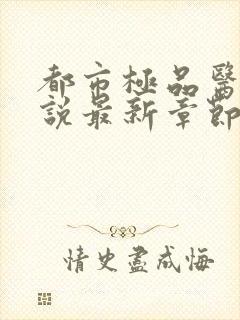 都市極品醫
說最新章節
情史盡成悔